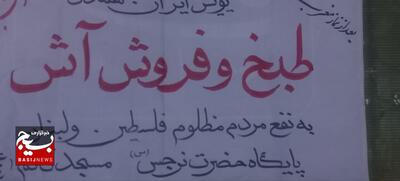 بعد از نماز مغرب
طبخ و فروش آش
به نفع مردم مظلوم فلسطین و لبنان
پایگاه حضرت نرجس (س) مسجد
خبرگزاری
بسیج
BASIJNEWS